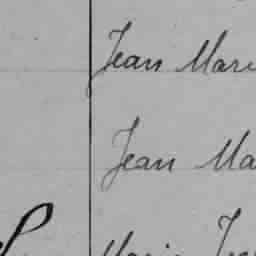 Jean Mari
Jean Ma
Marie Je